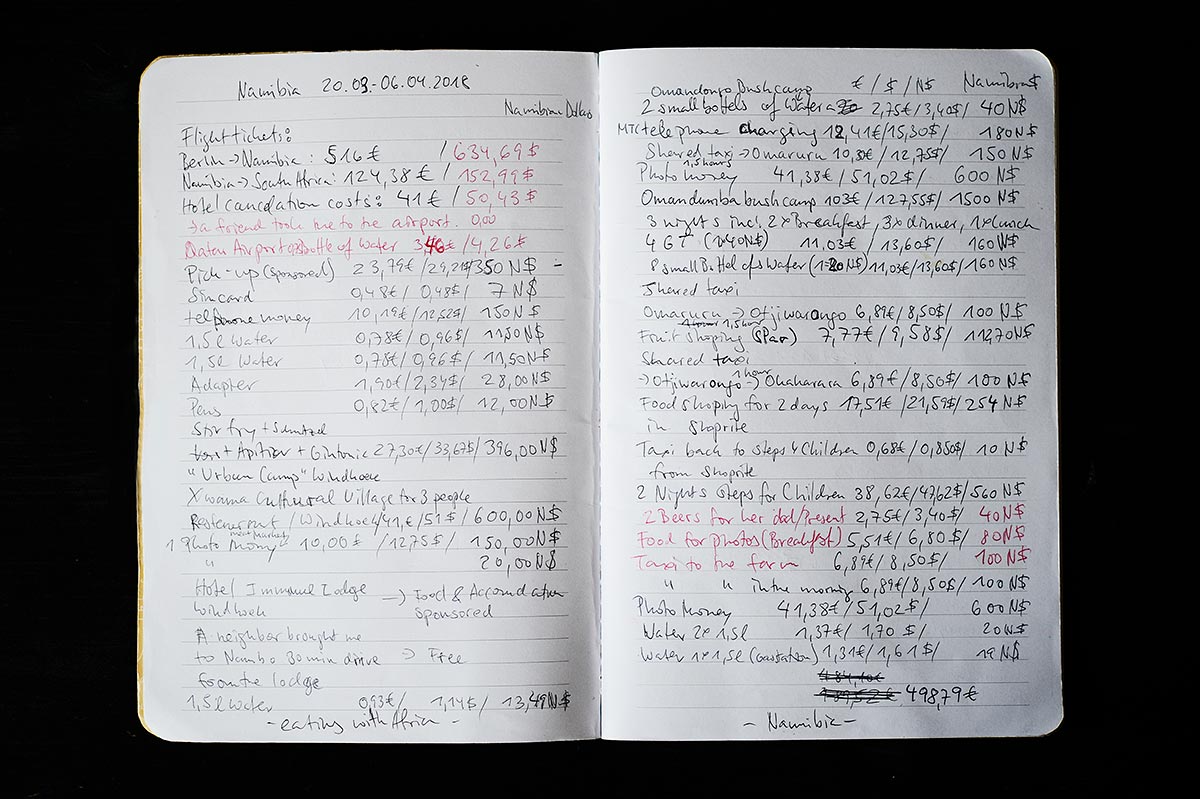 Namibia 20.03.-06.04.2018
Namibian Dollars
Flight tickets:
Berlin → Namibia : 516 € / 634,69$
Namibia → South Africa: 124,38€ / 152,99$
Hotel cancelation costs: 41€ / 50,43$
→ a friend took me to the airport. 0,00
Qatar Airport bottle of water 3,46€ / 4,26$
Pick-up (sponsored) 23,79€ / 29,21$ / 350 N$ -
Simcard 0,48€ / 0,48$ / 7 N$
money 10,19€ / 12,52$ / 150 N$
1,5l Water 0,78€ / 0,96$ / 11,50N$
1,5l Water 0,78€ / 0,96$ / 11,50N$
Adapter 1,90€ / 2,34$ / 28,00N$
Pens 0,82€ / 1,00$ / 12,00N$
Stir fry + Schnitzel
+ Gintonic 27,30€ / 33,67$ / 396,00N$
"Urban Camp" Windhoek
Xwama Cultural Village for 3 people
Restaurant / Windhoek / 41,€ / 51$ / 600,00N$
meat market
1 Photo money 10,00€ / 12,75$ / 150,00N$
" 20,00N$
Hotel Immanuel Lodge → Food & Accomodation
Windhoek sponsored
A neighbor brought me
to 30min drive → Free
from the lodge
1,5l water 0,93€ / 1,14$ / 13,49N$
- eating with Africa -
Omandongo Bushcamp € / $ / N$ Namibia $
2 small bottels of Water 2,75€ / 3,40$ / 40N$
MTC telephone charging 12,41€ / 15,30$ / 180N$
Shared taxi → Omaruru 10,30€ / 12,75$ / 150 N$
1,5 hours
Photo money 41,38€ / 51,02$ / 600 N$
Omandumba bush camp 103€ / 127,55$ / 1500 N$
3 nights incl. 2x Breakfest, 3x dinner, 1x Lunch
4 GT (1=40N$) 11,03€ / 13,60$ / 160 N$
8 small Bottel of Water (1=20N$) 11,03€ / 13,60$ / 160N$
Shared taxi
Omaruru → Otjiwarongo 6,89€ / 8,50$ / 100 N$
1,5 hour
Fruit shoping (Spar) 7,77€ / 9,58$ / 112,70N$
Shared taxi
1 hour
→ Otjiwarongo → Okaharara 6,89€ / 8,50$ / 100N$
Food shoping for 2 days 17,51€ / 21,59$ / 254 N$
in Shoprite
Taxi back to steps 4 Children 0,68€ / 0,850$ / 10 N$
from Shoprite
2 Nights steps for Children 38,62€ / 47,62$ / 560 N$
2 Beers for her dad/Present 2,75€ / 3,40$ / 40N$
Food for photos (Breakfest) 5,51€ / 6,80$ / 80N$
Taxi to the farm 6,89€ / 8,50$ / 100N$
" " in the morning 6,89€ / 8,50$ / 100N$
Photo Money 41,38€ / 51,02$ / 600N$
Water 2x 1,5l 1,37€ / 1,70 $ / 20N$
Water 1x 1,5l (Gasstation) 1,31€ / 1,61$ / 19 N$
498,79€
- Namibia -